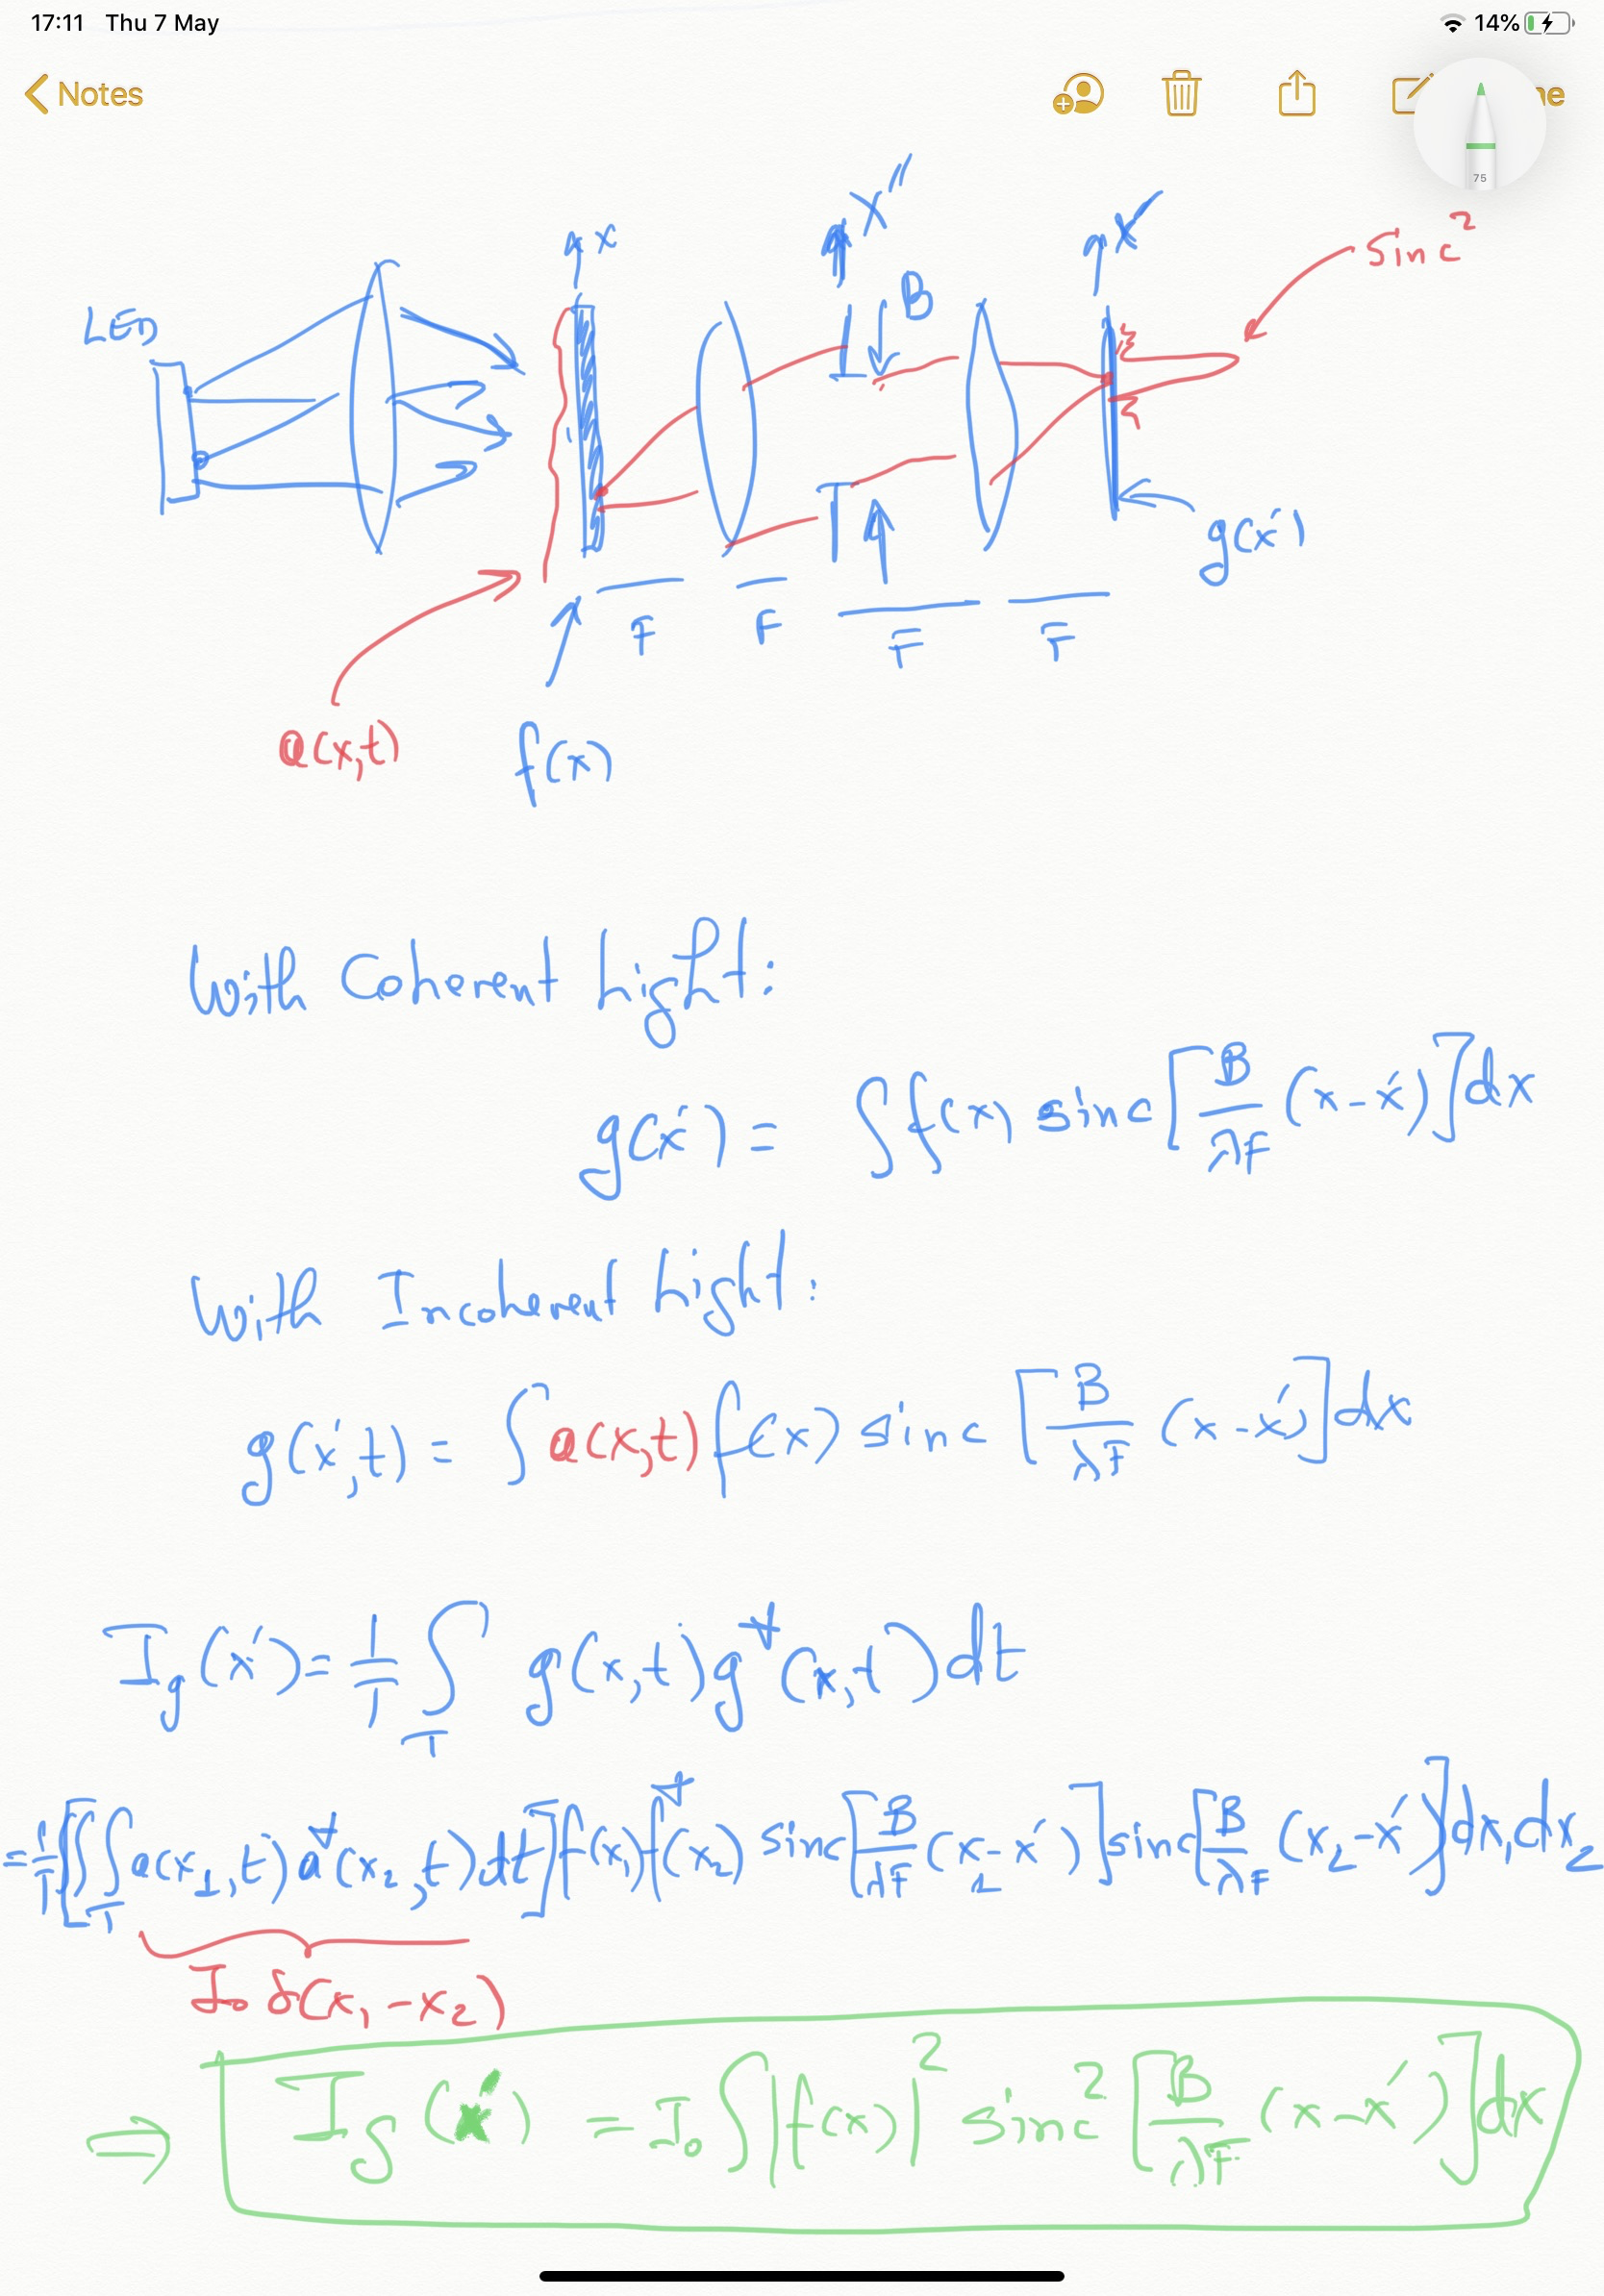 17:11 Thu 7 May 14%
Notes
75
x x'' x'
sinc²
LED
B
g(x')
F F F F
a(x,t)
f(x)
With Coherent Light:
g(x') = ∫ f(x) sinc[B/λF (x-x')]dx
With Incoherent Light:
g(x',t) = ∫ a(x,t) f(x) sinc[B/λF (x-x')]dx
I_g(x') = 1/T ∫_T g(x,t) g*(x,t) dt
= 1/T ∫∫[∫_T a(x₁,t) a*(x₂,t) dt] f(x₁) f*(x₂) sinc[B/λF (x₁-x')] sinc[B/λF (x₂-x')] dx₁dx₂
I₀ δ(x₁-x₂)
⇒ I_g(x') = I₀ ∫|f(x)|² sinc²[B/λF (x-x')]dx